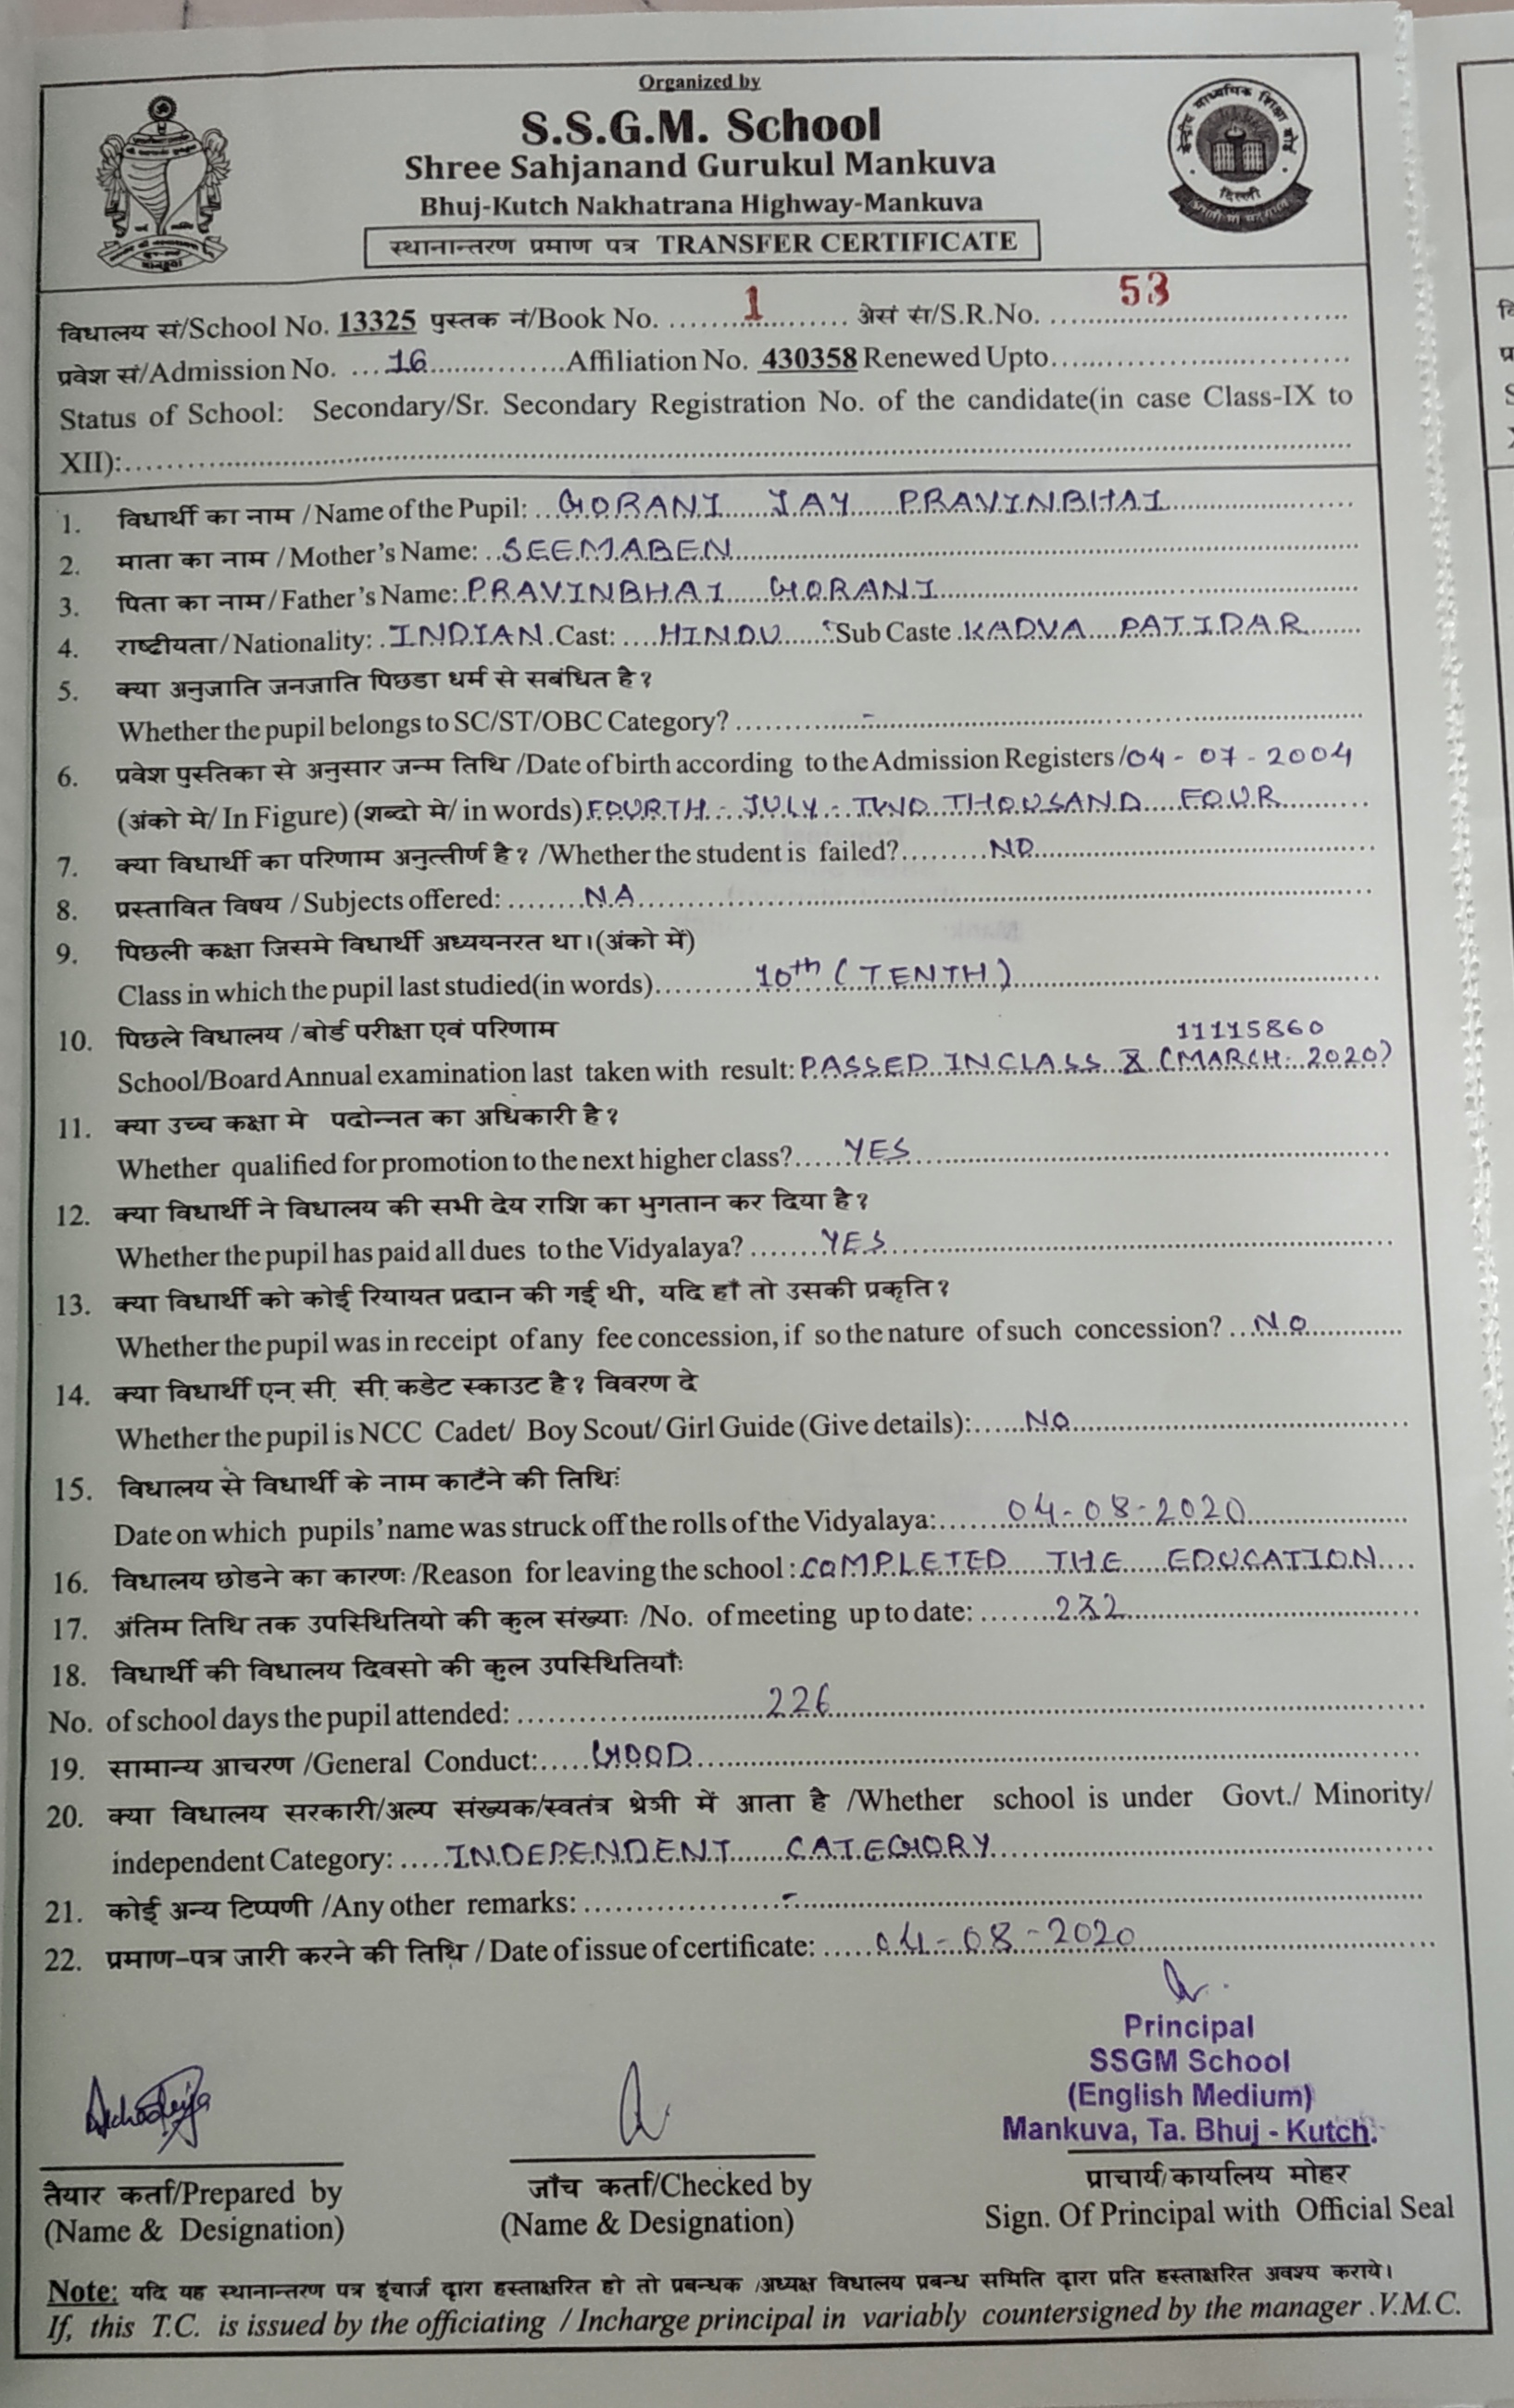 Organized by
S.S.G.M. School
Shree Sahjanand Gurukul Mankuva
Bhuj-Kutch Nakhatrana Highway-Mankuva
स्थानान्तरण प्रमाण पत्र TRANSFER CERTIFICATE
केन्द्रीय माध्यमिक शिक्षा बोर्ड
दिल्ली
विधालय सं/School No. 13325 पुस्तक नं/Book No. 1 अेसं सं/S.R.No. 53
प्रवेश सं/Admission No. 16 Affiliation No. 430358 Renewed Upto
Status of School: Secondary/Sr. Secondary Registration No. of the candidate(in case Class-IX to
XII):
1. विधार्थी का नाम / Name of the Pupil: GORANI JAY PRAVINBHAI
2. माता का नाम / Mother's Name: SEEMABEN
3. पिता का नाम / Father's Name: PRAVINBHAI GORANI
4. राष्टीयता / Nationality: INDIAN Cast: HINDU Sub Caste KADVA PATIDAR
5. क्या अनुजाति जनजाति पिछडा धर्म से सबंधित है?
Whether the pupil belongs to SC/ST/OBC Category? -
6. प्रवेश पुस्तिका से अनुसार जन्म तिथि /Date of birth according to the Admission Registers / 04-07-2004
(अंको मे/ In Figure) (शब्दो मे/ in words) FOURTH - JULY - TWO THOUSAND FOUR
7. क्या विधार्थी का परिणाम अनुत्तीर्ण है? /Whether the student is failed? NO
8. प्रस्तावित विषय / Subjects offered: NA
9. पिछली कक्षा जिसमे विधार्थी अध्ययनरत था।(अंको में)
Class in which the pupil last studied(in words) 10th (TENTH)
10. पिछले विधालय /बोर्ड परीक्षा एवं परिणाम 11115860
School/Board Annual examination last taken with result: PASSED IN CLASS X (MARCH: 2020)
11. क्या उच्च कक्षा मे पदोन्नत का अधिकारी है?
Whether qualified for promotion to the next higher class? YES
12. क्या विधार्थी ने विधालय की सभी देय राशि का भुगतान कर दिया है?
Whether the pupil has paid all dues to the Vidyalaya? YES
13. क्या विधार्थी को कोई रियायत प्रदान की गई थी, यदि हाँ तो उसकी प्रकृति?
Whether the pupil was in receipt of any fee concession, if so the nature of such concession? NO
14. क्या विधार्थी एन. सी. सी. कडेट स्काउट है? विवरण दे
Whether the pupil is NCC Cadet/ Boy Scout/ Girl Guide (Give details): NO
15. विधालय से विधार्थी के नाम काटँने की तिथिः
Date on which pupils' name was struck off the rolls of the Vidyalaya: 04-08-2020
16. विधालय छोडने का कारणः /Reason for leaving the school : COMPLETED THE EDUCATION
17. अंतिम तिथि तक उपस्थितियो की कुल संख्याः /No. of meeting up to date: 232
18. विधार्थी की विधालय दिवसो की कुल उपस्थितियाँः
No. of school days the pupil attended: 226
19. सामान्य आचरण /General Conduct: GOOD
20. क्या विधालय सरकारी/अल्प संख्यक/स्वतंत्र श्रेत्री में आता है /Whether school is under Govt./ Minority/
independent Category: INDEPENDENT CATEGORY
21. कोई अन्य टिप्पणी /Any other remarks: -
22. प्रमाण-पत्र जारी करने की तिथि / Date of issue of certificate: 04-08-2020
Principal
SSGM School
(English Medium)
Mankuva, Ta. Bhuj - Kutch.
तैयार कर्ता/Prepared by
(Name & Designation)
जाँच कर्ता/Checked by
(Name & Designation)
प्राचार्य/कार्यालय मोहर
Sign. Of Principal with Official Seal
Note: यदि यह स्थानान्तरण पत्र इंचार्ज द्वारा हस्ताक्षरित हो तो प्रबन्धक /अध्यक्ष विधालय प्रबन्ध समिति द्वारा प्रति हस्ताक्षरित अवश्य कराये।
If, this T.C. is issued by the officiating / Incharge principal in variably countersigned by the manager .V.M.C.